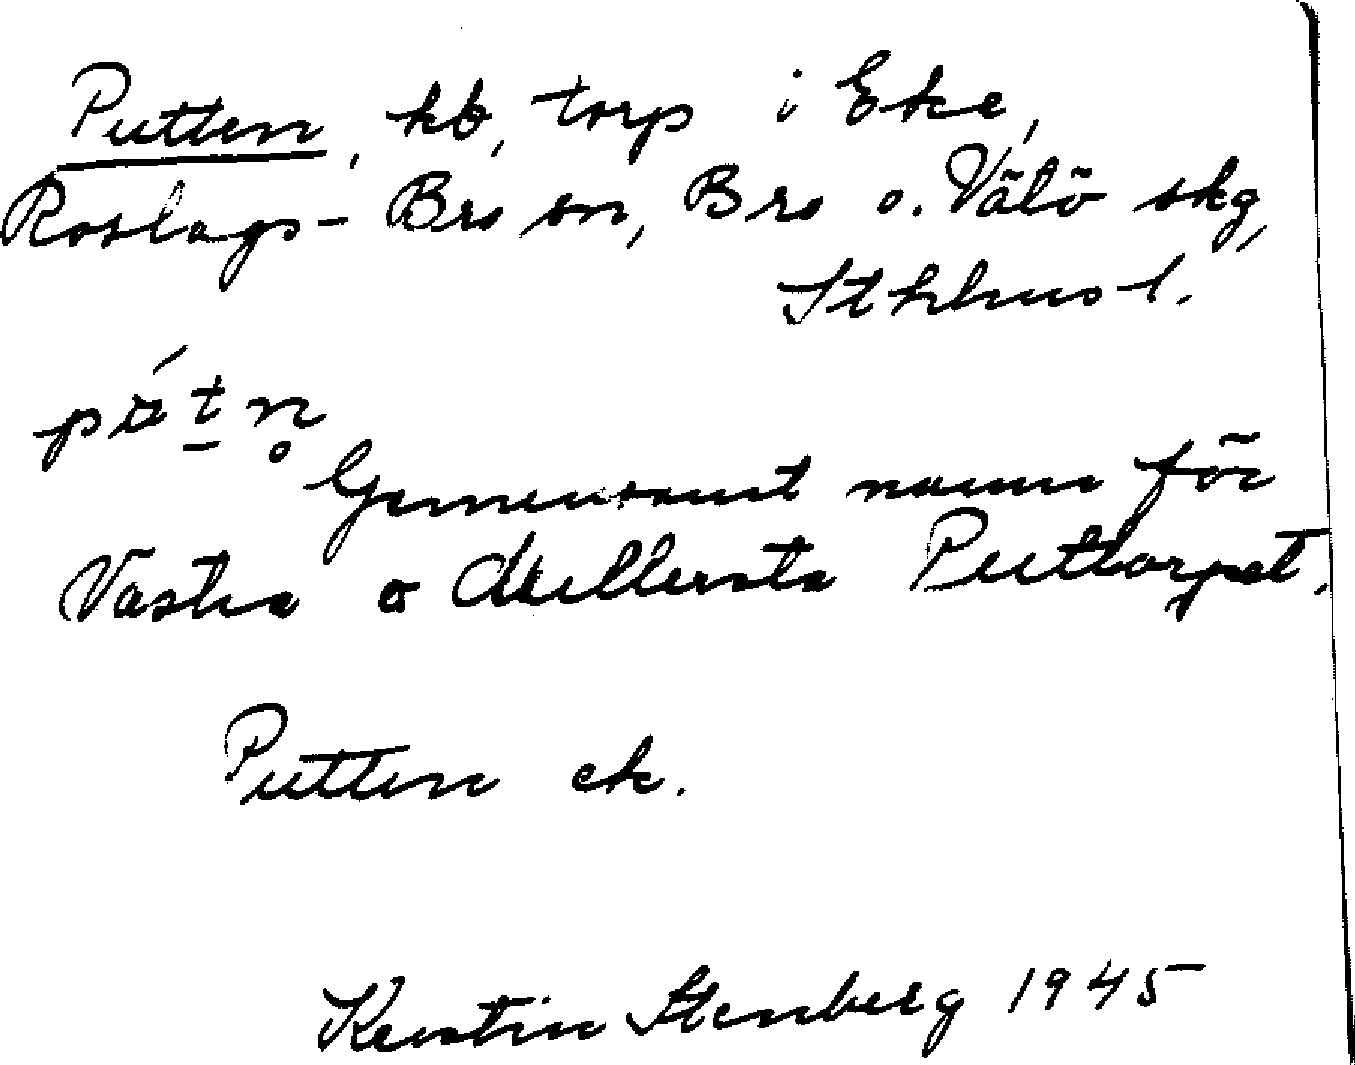 Putten, kb, torp i Eke,
Roslags-Bro sn, Bro o. Vätö skg,
Sthlms l.
Gemensamt namn för
Västra o Mellersta Puttorpet.
Putten ek.
Kerstin Stenberg 1945